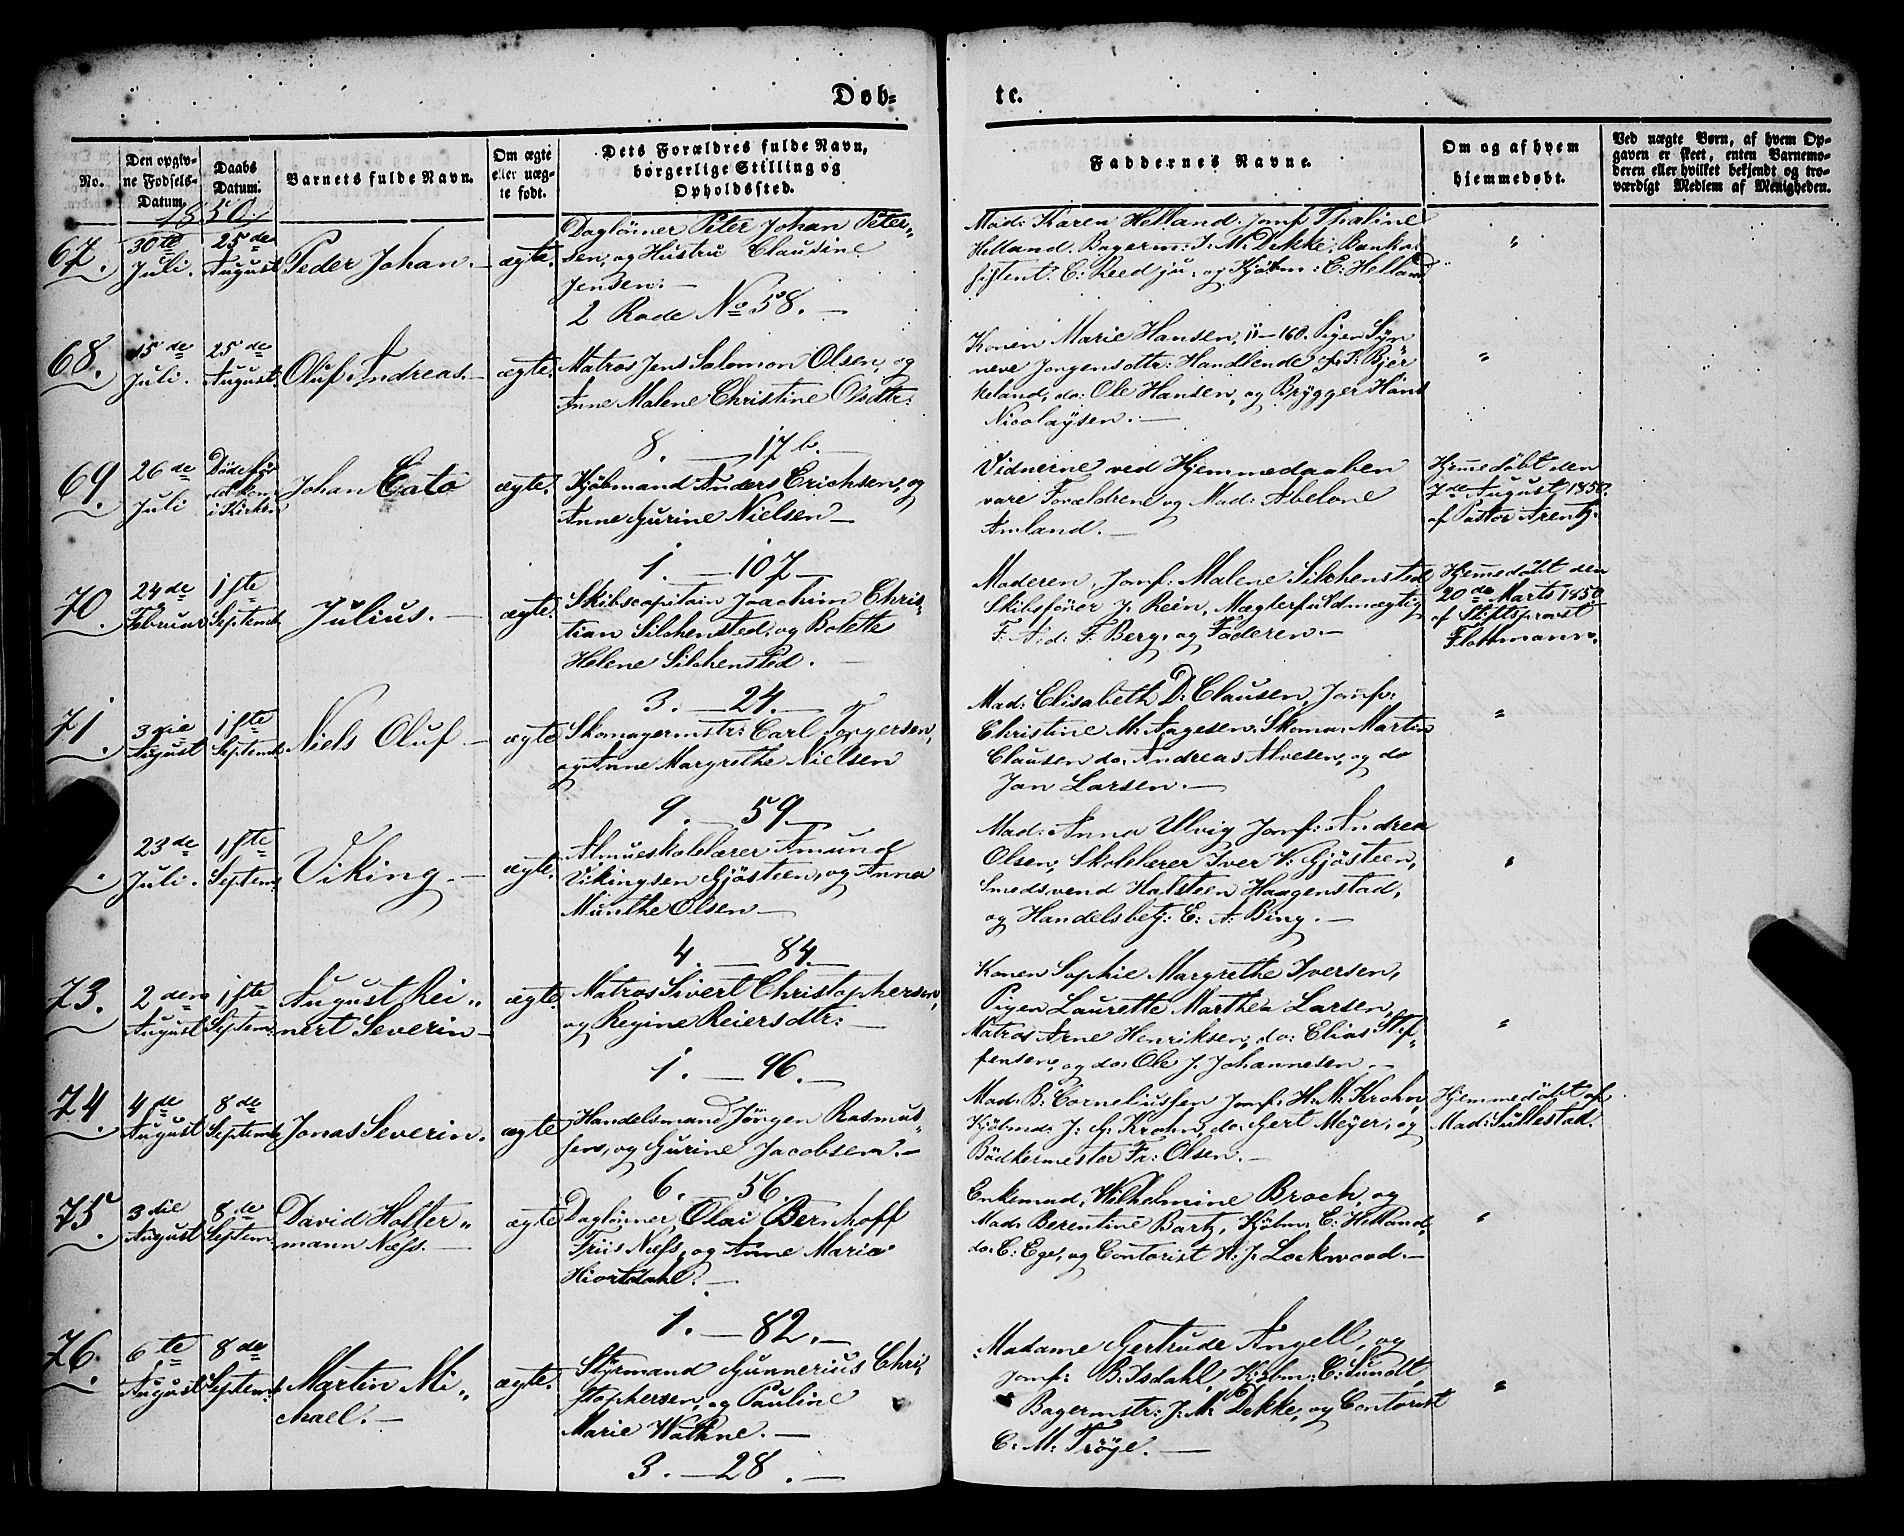 Døb=
te.
No.
Den opgiv=
ne Fødsels=
Datum.
Daabs
Datum.
Barnets fulde Navn.
Om ægte
eller uæg=
te født.
Dets Forældres fulde Navn,
børgerlige Stilling og
Opholdssted.
Faddernes Navne.
Om og af hvem
hjemmedøbt.
Ved uægte Børn, af hvem Op=
gaven er skeet, enten Barnemo=
deren eller hvilket bekjendt og tro=
værdigt Medlem af Menigheden.
1850.
67.
30te
Juli.
25de
August
Peder Johan.
ægte.
Daglønner Peter Johan Peter=
sen, og Hustru Claudine
Jensen.
2 Rode No 58.
Mad: Karen Helland. Jomf. Thaline
Helland. Bagerm: J. M. Dekke, Bankas
sistent: C: Reed ju: og Kjøbm: C: Helland
"
68.
15de
Juli.
25de
August
Oluf Andreas.
ægte.
Matros Jens Salomon Olsen, og
Anne Malene Christine Olsdtr:
8. — 17 b.
Konen Marie Hansen, 11-160. Pigen Syn
neve Jorgensdtr: Handlende J: Bjer
keland, do: Ole Hansen, og Brygger Hans
Nicolaysen.
"
69.
26de
Juli
Døde før
det kom
i Kirken
Johan Cato
ægte.
Kjøbmand Anders Erichsen, og
Anne Gurine Nielsen
1. — 107
Vidnerne ved Hjemmedaaben
vare Forældrene og Mad: Abelone
Amland.
Hjemedøbt den
7de August 1850.
af Pastor Arentz.
70.
24de
Februar
1ste
Septembr
Julius.
ægte.
Skibscapitain Joachim Chris=
tian Silchensted, og Bolette
Helene Silchensted.
3. — 24.
Moderen, Jomf: Malene Silchensted
Skibsfører J. Rein, Mæglerfuldmægtig
F: A: d: F: Berg, og Faderen.
Hjemedøbt den
20de Marts 1850
af Stiftsprovst
Flottmann.
71.
3die
August
1ste
Septembr
Niels Oluf
ægte
Skomagermstr: Carl Torgersen,
og Anne Margrethe Nielsen
9. — 59
Mad: Elisabeth D: Clausen, Jomf:
Christine M: Aagesen. Skoma: Martin
Clausen do: Andreas Alvesen, og do
Jan Larsen.
"
23de
Juli.
1ste
Septem:
Viking
ægte.
Almueskolelærer Amund
Vikingsen Gjøsteen, og Anna
Munthe Olsen
4. — 84.
Mad: Anna Ulvig Jomf: Andrea
Olsen, Skolelærer Iver V: Gjøsteen,
Smedsvend Halsteen Haagenstad,
og Handelsbetj: E: A: Bing.
"
73.
2den
August
1ste
Septem:
August Rei=
nert Severin
ægte.
Matros Sivert Christophersen,
og Regine Reiersdtr:
1. — 96.
Konen Sophie Margrethe Iversen,
Pigen Laurette Marthea Larsen,
Matros Arne Henriksen, do: Elias Stef
fensen, og do: Ole J. Johannesen
"
74.
4de
August
8de
Septembr
Jonas Severin.
ægte
Handelsmand Jörgen Rasmus=
sen, og Gurine Jacobsen.
6. 56
Mad: B: Corneliussen Jomf: H: M: Krohn,
Kjøbmd J: G: Krohn, do: Gert Meyer, og
Bödkermester Fr: Olsen.
Hjemmedøbt af
Mad: Sullestad.
75.
3die
August
8de
Septem:
David Holter=
mann Næss.
ægte
Daglønner, Olai Bernhoff
Friis Næss, og Anne Maria
Hiortdahl.
1. — 82.
Enkemad, Wilhelmine Broch, og
Mad: Berentine Bartz, Kjøbm: C: Helland,
do: C: Ege, og Contorist H: J. Lockwood.
"
76.
6te
August
8de
Septem:
Martin Mi=
chael.
ægte.
Styrmand Gunnerius Chri=
stophersen, og Pauline
Marie Wathne.
3. — 28.
Madame Gertrude Angell, og
Jomf: B: Isdahl, Kjøbm: C: Sundt,
Bagermstr: J: M: Dekke, og Contorist
C: M: Trøye.
"